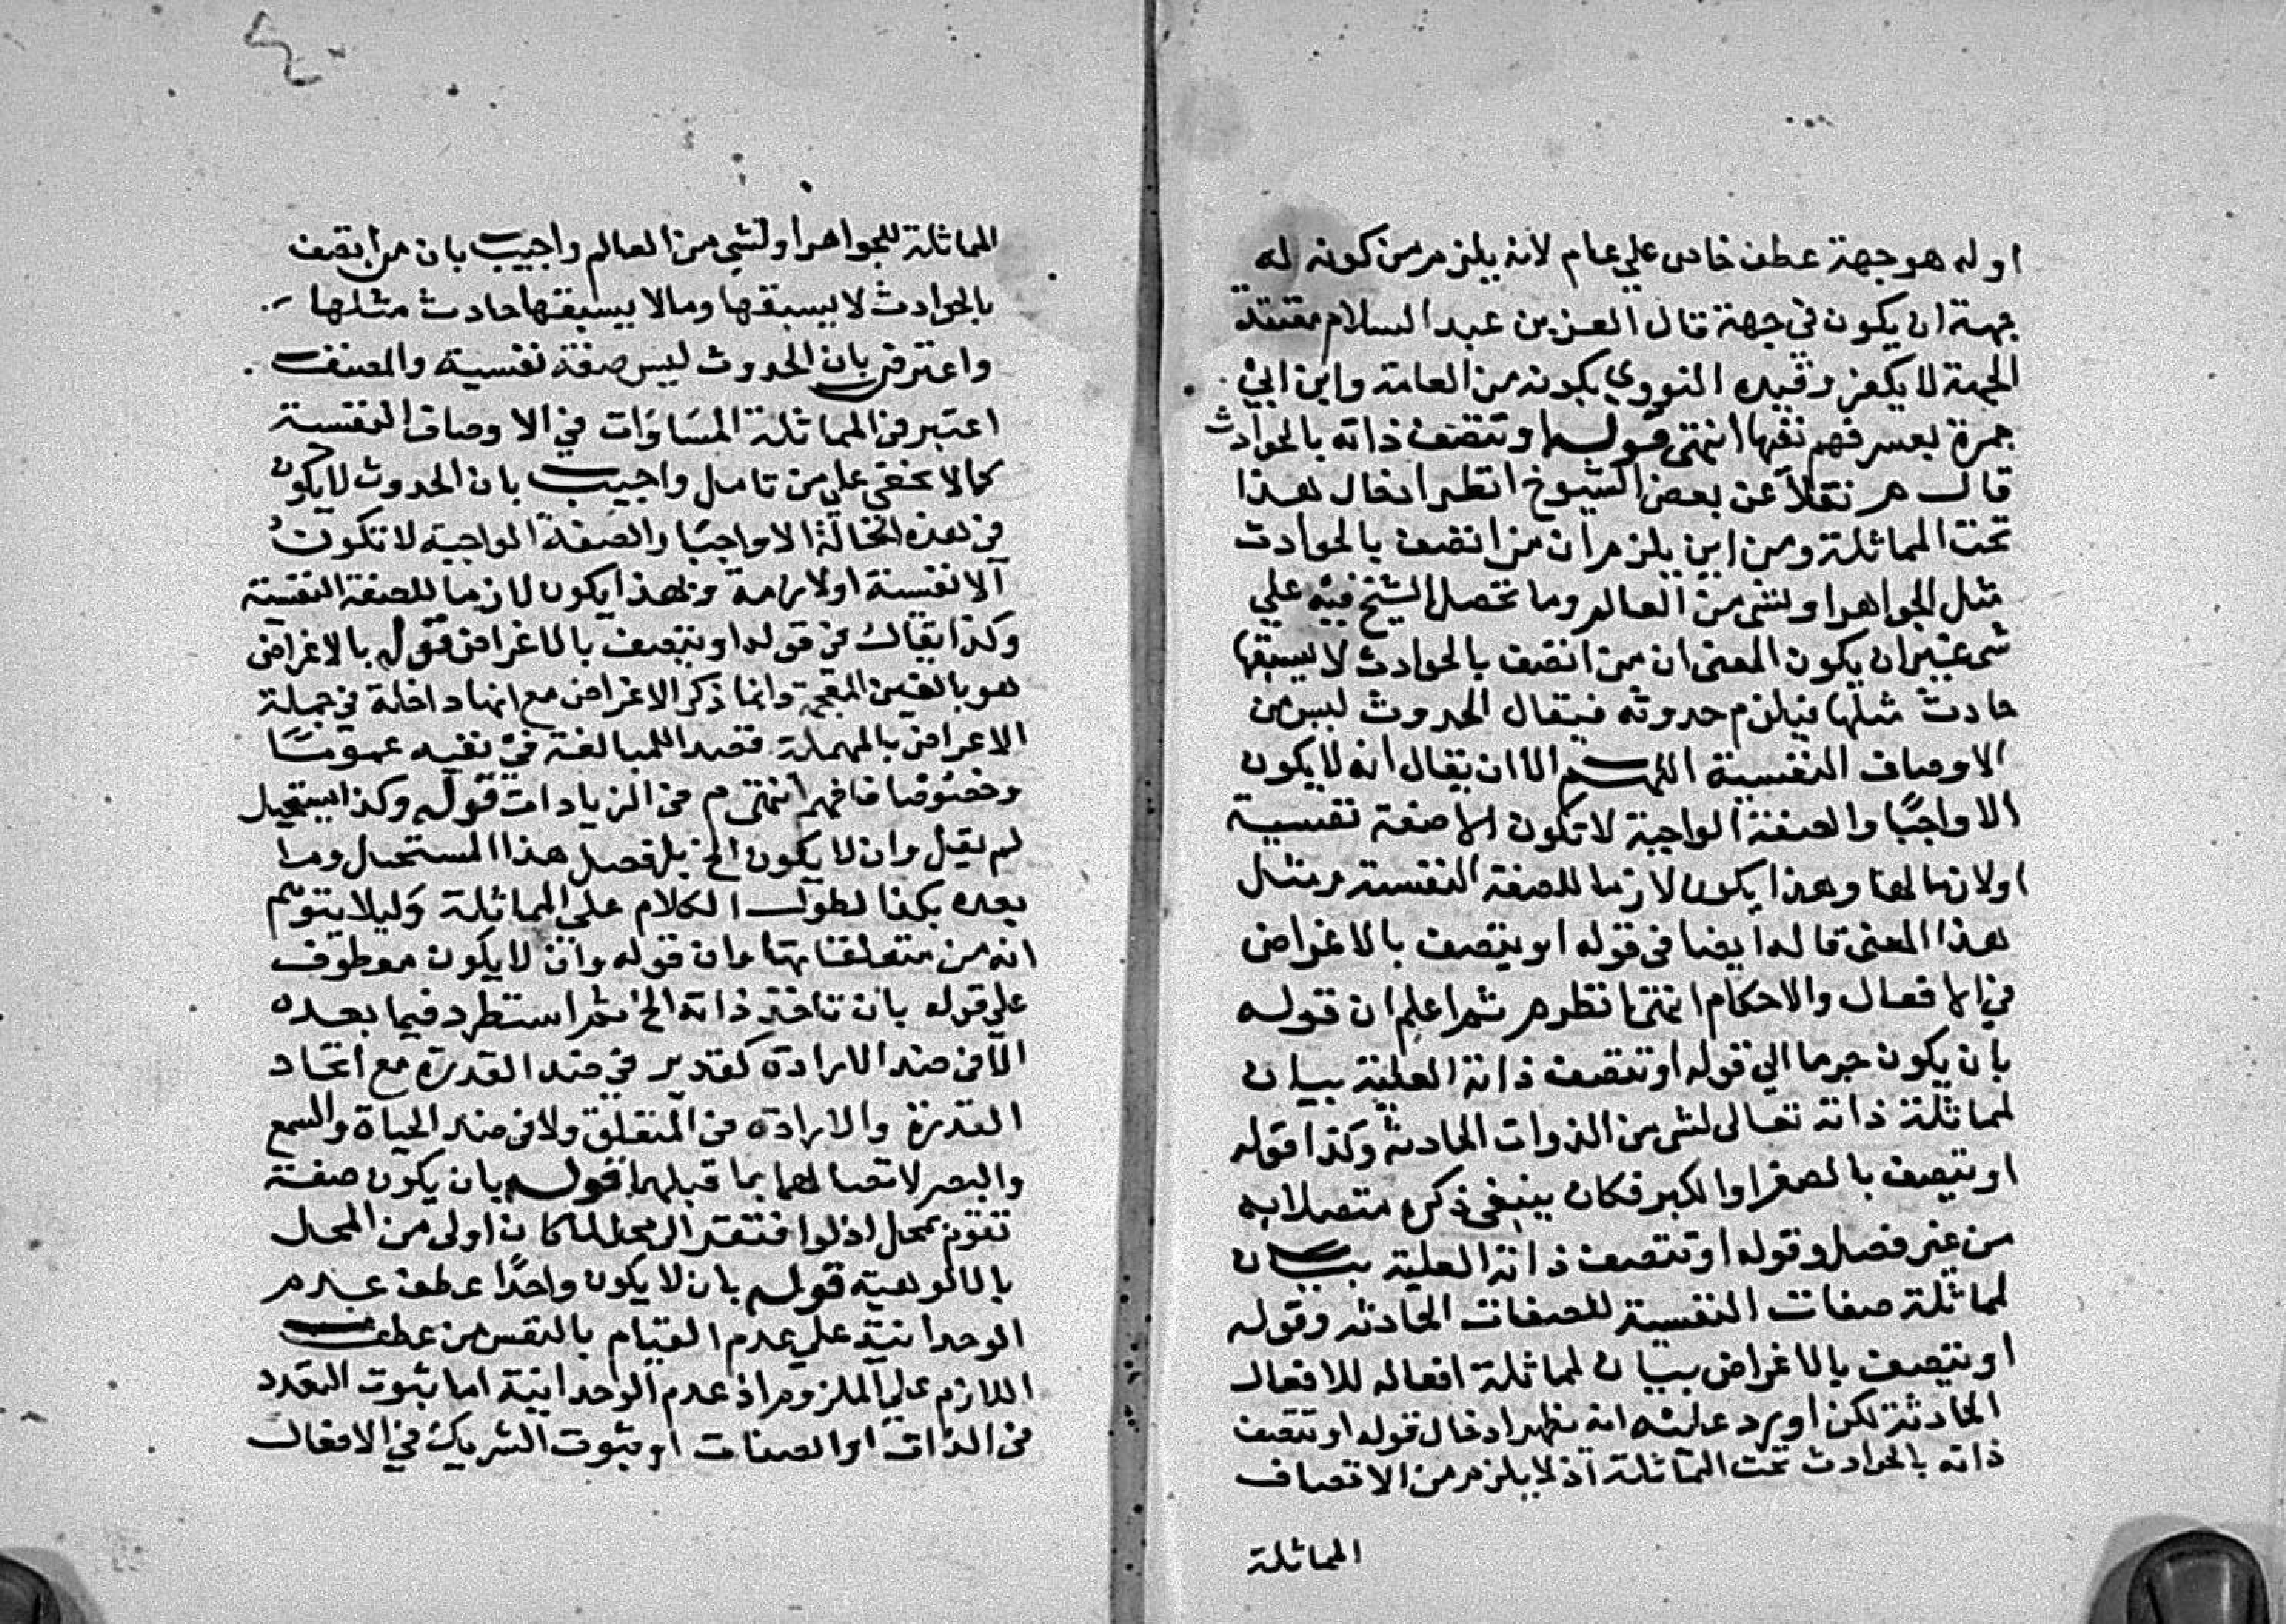 او له هو جهة عطف خاص علي عام لانه يلزم من كونه له
جهة ان يكون في جهة قال العز بن عبد السلام معتقد
الجهة لا يكفر وقيده النووي بكونه من العامة وابن ابي
جمرة بعسر فهم نفيها انتهى قوله او تتصف ذاته بالحوادث
قال م ر نقلا عن بعض الشيوخ انظر ادخال هذا
تحت المماثلة ومن اين يلزم ان من اتصف بالحوادث
مثل الجواهر او لشي من العالم وما تحصل الشيخ فيه علي
شي غير ان يكون المعنى ان من اتصف بالحوادث لا يسبقها
حادث مثلها فيلزم حدوثه فيقال الحدوث ليس من
الاوصاف النفسية اللهم الا ان يقال انه لا يكون
الا واجبًا والصفة الواجبة لا تكون الا صفة نفسية
او لازما لها وهذا يكون لازما للصفة النفسية مثل
هذا المعنى قاله ايضا في قوله او يتصف بالاغراض
في الافعال والاحكام انتهى انظره ثم اعلم ان قوله
بان يكون جرما الي قوله او تتصف ذاته العلية بيان
لمماثلة ذاته تعالى لشي من الذوات الحادثة وكذا قوله
او يتصف بالصغر او الكبر فكان ينبغي ذكره متصلا به
من غير فصل وقوله او تتصف ذاته العلية بيان
لمماثلة صفات النفسية للصفات الحادثة وقوله
او يتصف بالاغراض بيان لمماثلة افعاله للافعال
الحادثة لكن اورد عليه انه نظير ادخال قوله او تتصف
ذاته بالحوادث تحت المماثلة اذ لا يلزم من الاتصاف
المماثلة
المماثلة للجواهر او لشي من العالم واجيب بان من اتصف
بالحوادث لا يسبقها وما لا يسبقها حادث مثلها
واعترض بان الحدوث ليس صفة نفسية والمصنف
اعتبر في المماثلة المساوات في الاوصاف النفسية
كما لا يخفى علي من تامل واجيب بان الحدوث لا يكون
في هذه الحالة الا واجبًا والصفة الواجبة لا تكون
الا نفسية او لازمة وبهذا يكون لازما للصفة النفسية
وكذا يقال في قوله او يتصف بالاغراض قوله بالاغراض
هو بالغين المعجمة وانما ذكر الاغراض مع انها داخلة في جملة
الاعراض بالمهملة قصدا للمبالغة في نفيه عمومًا
وخصوصًا فافهم انتهى م من الزيادات قوله وكذا يستحيل
لم يقل وان لا يكون الخ بل فصل هذا المستحيل وما
بعده بكذا لطول الكلام علي المماثلة وليلا يتوهم
انه من متعلقاتها وان قوله وان لا يكون معطوف
علي قوله بان تاخذ ذاته الخ ثم استطرد فيما بعده
الا في ضد الارادة كقدير في ضد القدرة مع اتحاد
القدرة والارادة في المتعلق ولا في ضد الحياة والسمع
والبصر لاتصالهما بما قبلهما قوله بان يكون صفة
تقوم بمحل اذ لو افتقر الي محل لما كان اولى من المحل
بالالوهية قوله بان لا يكون واحدًا عطف عدم
الوحدانية علي عدم القيام بالنفس من عطف
اللازم علي الملزوم اذ عدم الوحدانية اما بثبوت التعدد
في الذات او الصفات او بثبوت الشريك في الافعال